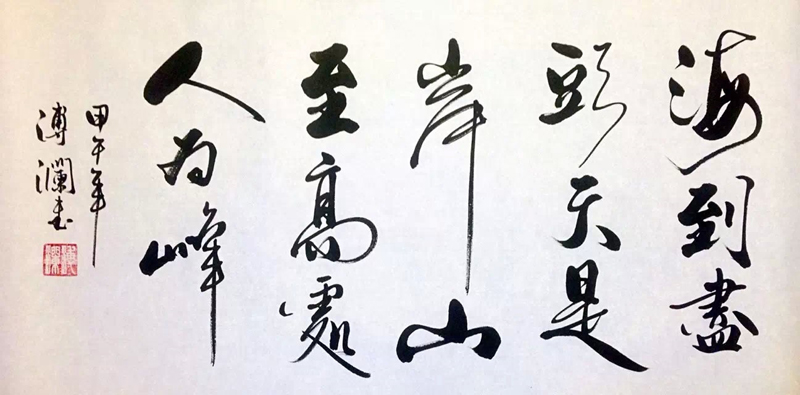 海到盡
頭天是
岸山
至高處
人为峰
甲午年
溥瀾书